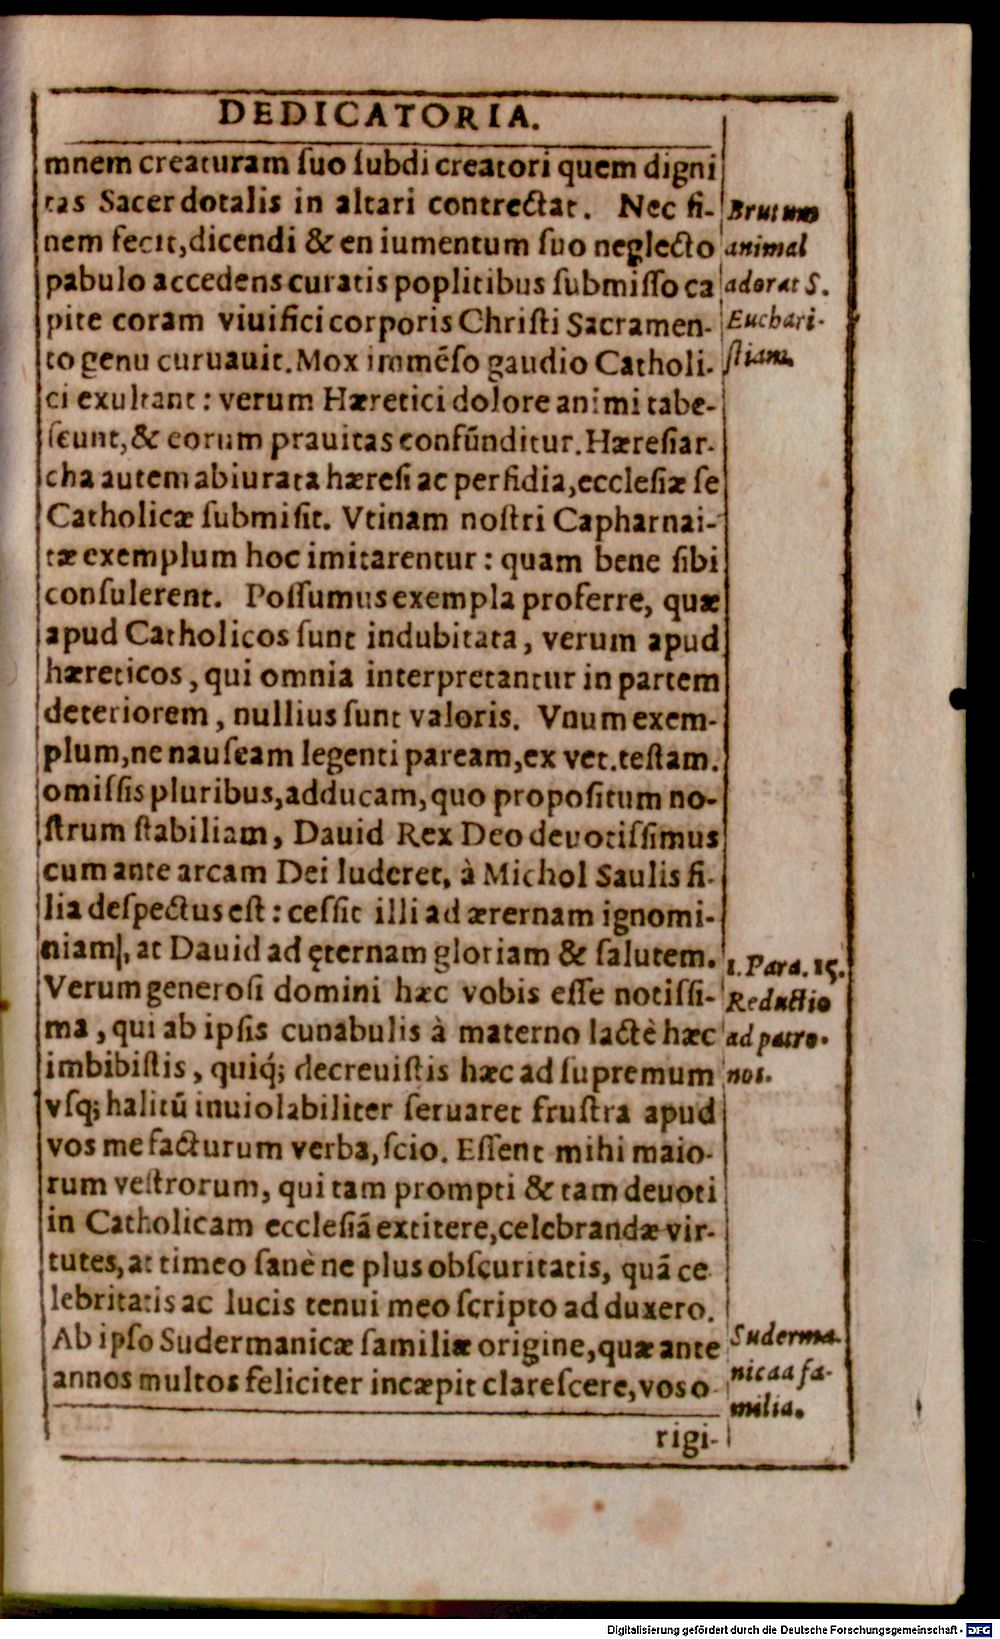 DEDICATORIA.
mnem creaturam ſuo ſubdi creatori quem digni
tas Sacerdotalis in altari contrectat. Nec fi-
nem fecit, dicendi & en iumentum ſuo neglecto
pabulo accedens curatis poplitibus ſubmiſſo ca
pite coram viuifici corporis Chriſti Sacramen-
to genu curuauit. Mox immẽſo gaudio Catholi-
ci exultant: verum Hæretici dolore animi tabe-
ſcunt, & eorum prauitas confũnditur. Hæreſiar-
cha autem abiurata hæreſi ac perfidia, eccleſiæ ſe
Catholicæ ſubmiſit. Vtinam noſtri Capharnai-
tæ exemplum hoc imitarentur: quam bene ſibi
conſulerent. Poſſumus exempla proferre, quæ
apud Catholicos ſunt indubitata, verum apud
hæreticos, qui omnia interpretantur in partem
deteriorem, nullius ſunt valoris. Vnum exem-
plum, ne nauſeam legenti paream, ex vet. teſtam.
omiſſis pluribus, adducam, quo propoſitum no-
ſtrum ſtabiliam, Dauid Rex Deo deuotiſſimus
cum ante arcam Dei luderet, à Michol Saulis fi-
lia deſpectus eſt: ceſſit illi ad ærernam ignomi-
niam|, at Dauid ad ęternam gloriam & ſalutem.
Verum generoſi domini hæc vobis eſſe notiſſi-
ma, qui ab ipſis cunabulis à materno lactè hæc
imbibiſtis, quiq́; decreuiſtis hæc ad ſupremum
vſq; halitũ inuiolabiliter ſeruaret fruſtra apud
vos me facturum verba, ſcio. Eſſent mihi maio-
rum veſtrorum, qui tam prompti & tam deuoti
in Catholicam eccleſiã extitere, celebrandæ vir-
tutes, at timeo ſanè ne plus obſcuritatis, quã ce
lebritatis ac lucis tenui meo ſcripto adduxero.
Ab ipſo Sudermanicæ familiæ origine, quæ ante
annos multos feliciter incæpit clareſcere, vos o
rigi-
Brutum
animal
adorat S.
Euchari-
ſtiam.
1. Para. 15.
Reductio
ad patro-
nos.
Suderma-
nicaa fa-
milia.
Digitalisierung gefördert durch die Deutsche Forschungsgemeinschaft - DFG